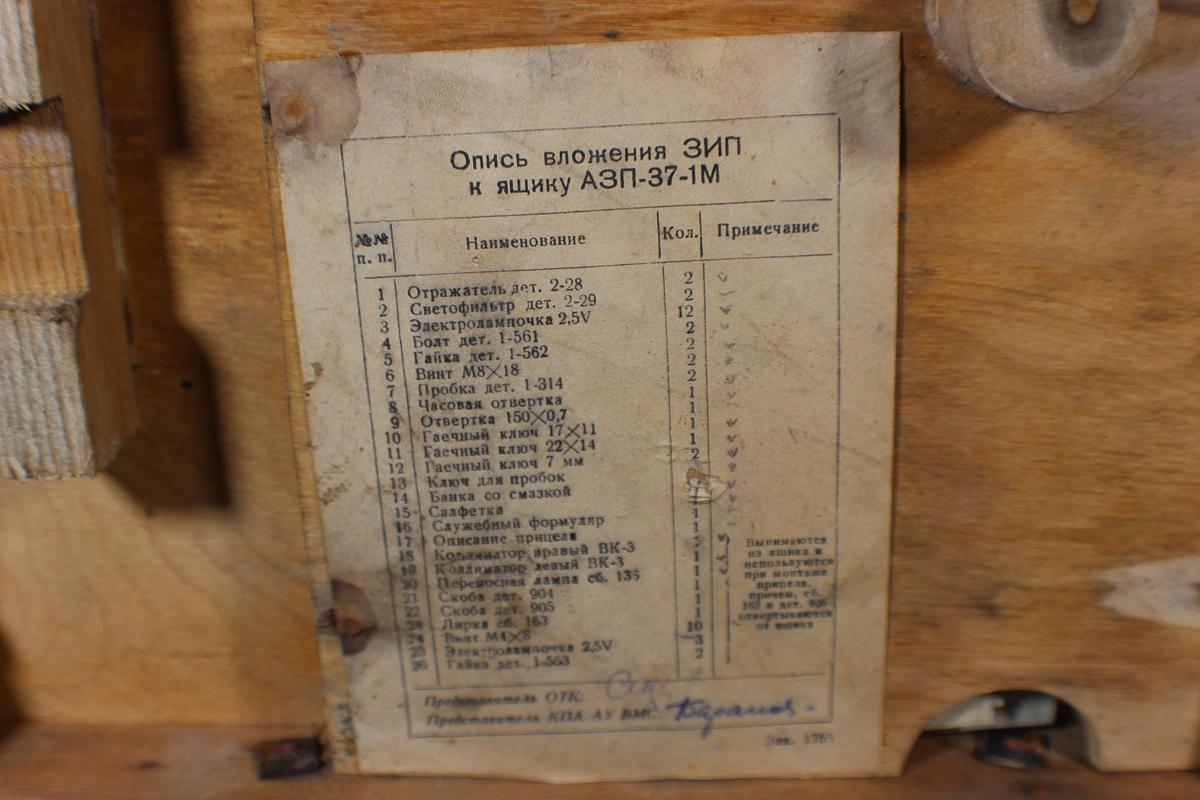 Опись вложения ЗИП
к ящику АЗП-37-1М
№№ п. п. Наименование Кол. Примечание
1 Отражатель дет. 2-28 2
2 Светофильтр дет. 2-29 2
3 Электролампочка 2,5V 12
4 Болт дет. 1-561 2
5 Гайка дет. 1-562 2
6 Винт М8×18 2
7 Пробка дет. 1-314 2
8 Часовая отвертка 1
9 Отвертка 150×0,7 1
10 Гаечный ключ 17×11 1
11 Гаечный ключ 22×14 1
12 Гаечный ключ 7 мм 2
13 Ключ для пробок
14 Банка со смазкой
15 Салфетка 1
16 Служебный формуляр 1
17 Описание прицела
18 Коллиматор правый ВК-3 1
19 Коллиматор левый ВК-3 1
20 Переносная лампа сб. 135 1
21 Скоба дет. 904 1
22 Скоба дет. 905 1
23 Лирка сб. 163 1
24 Винт М4×8 10
25 Электролампочка 2,5V 3
26 Гайка дет. 1-563 2
Вынимаются
из ящика и
используются
при монтаже
прицела,
причем, сб.
163 и дет. 905
отвертываются
от ящика
Представитель ОТК:
Представитель КПА АУ ВМС:
Зак. 1755